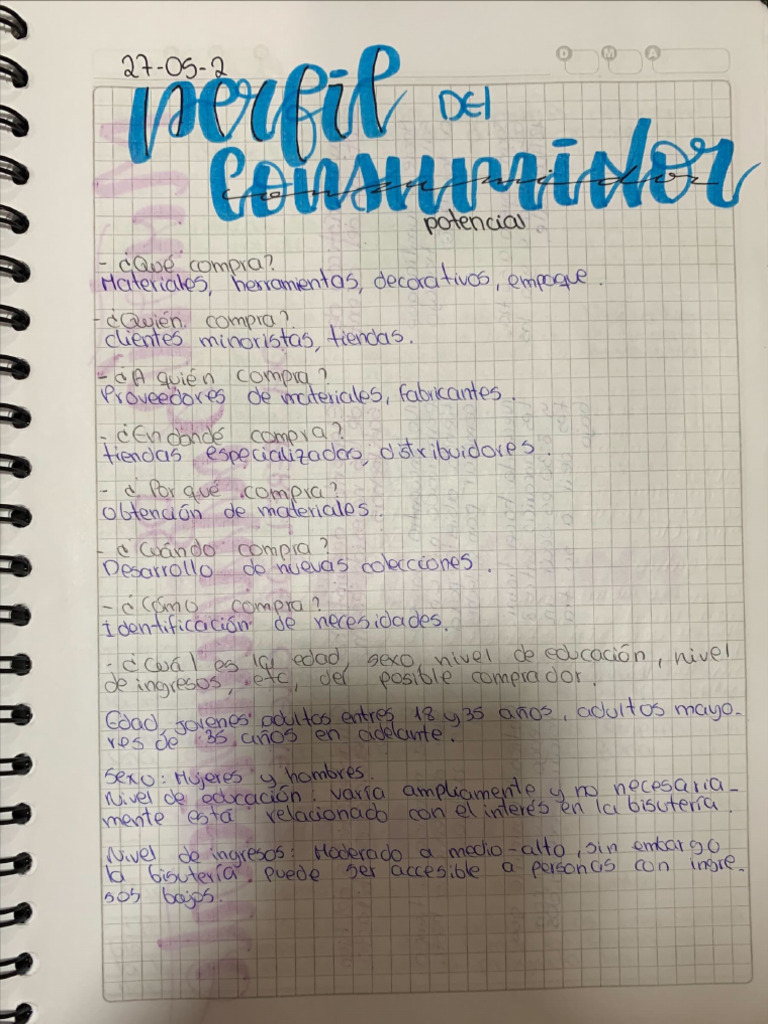 D M A
27-05-2
Perfil del
Consumidor
potencial
- ¿Qué compra?
Materiales, herramientas, decorativos, empaque.
- ¿Quién compra?
clientes minoristas, tiendas.
- ¿A quién compra?
Proveedores de materiales, fabricantes.
- ¿En dónde compra?
tiendas especializadas, distribuidores.
- ¿Por qué compra?
Obtención de materiales.
- ¿Cuándo compra?
Desarrollo de nuevas colecciones.
- ¿Cómo compra?
identificación de necesidades.
- ¿Cuál es la edad, sexo, nivel de educación, nivel
de ingresos, etc, del posible comprador.
Edad, jovenes adultos entres 18 y 35 años, adultos mayo-
res de 35 años en adelante.
Sexo: Mujeres y hombres.
Nivel de educación: varía ampliamente y no necesaria-
mente está relacionado con el interés en la bisutería.
Nivel de ingresos: Moderado a medio-alto, sin embargo
la bisutería puede ser accesible a personas con ingre-
sos bajos.